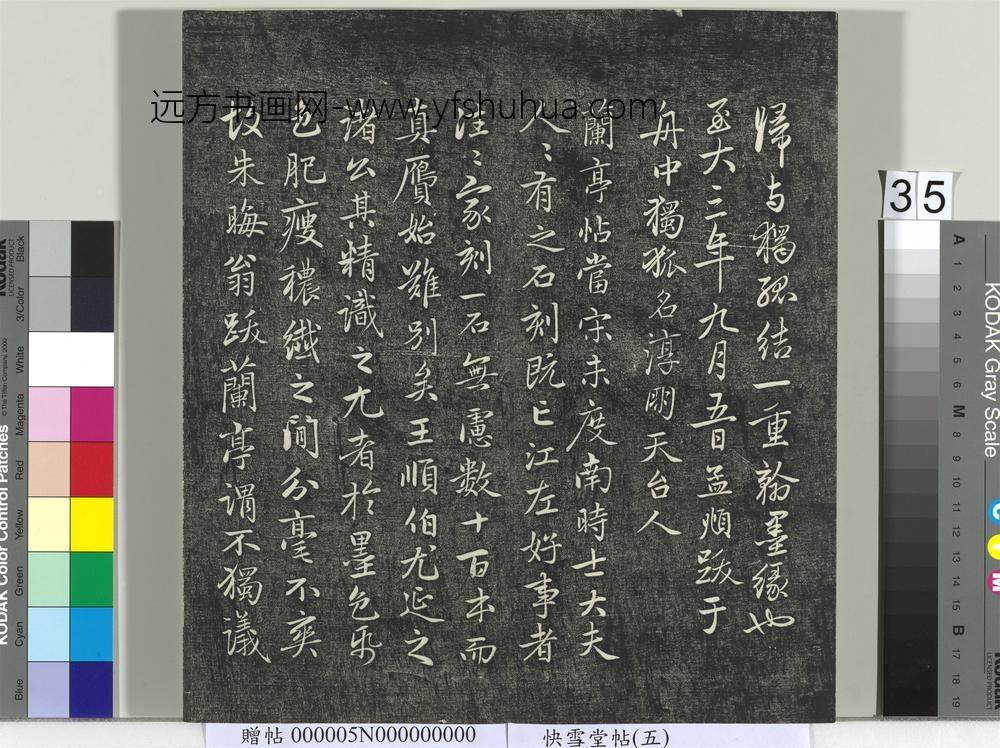 歸与獨孤結一重翰墨緣也
至大三年九月五日孟頫跋于
舟中獨孤名淳朋天台人
蘭亭帖當宋未度南時士大夫
人〻有之石刻既亡江左好事者
往〻家刻一石無慮數十百本而
真贗始難別矣王順伯尤延之
諸公其精識之尤者於墨色帋
色肥瘦穠纖之間分毫不爽
故朱晦翁跋蘭亭謂不獨議
远方书画网-www.yfshuhua.com
35
KODAK Color Control Patches
© The Tiffen Company, 2000
Kodak
LICENSED PRODUCT
Blue
Cyan
Green
Yellow
Red
Magenta
White
3/Color
Black
KODAK Gray Scale
A 1 2 3 4 5 6 M 8 9 10 11 12 13 14 15 B 17 18 19
C
Y
M
Kodak
LICENSED PRODUCT
贈帖 000005N000000000
快雪堂帖(五)